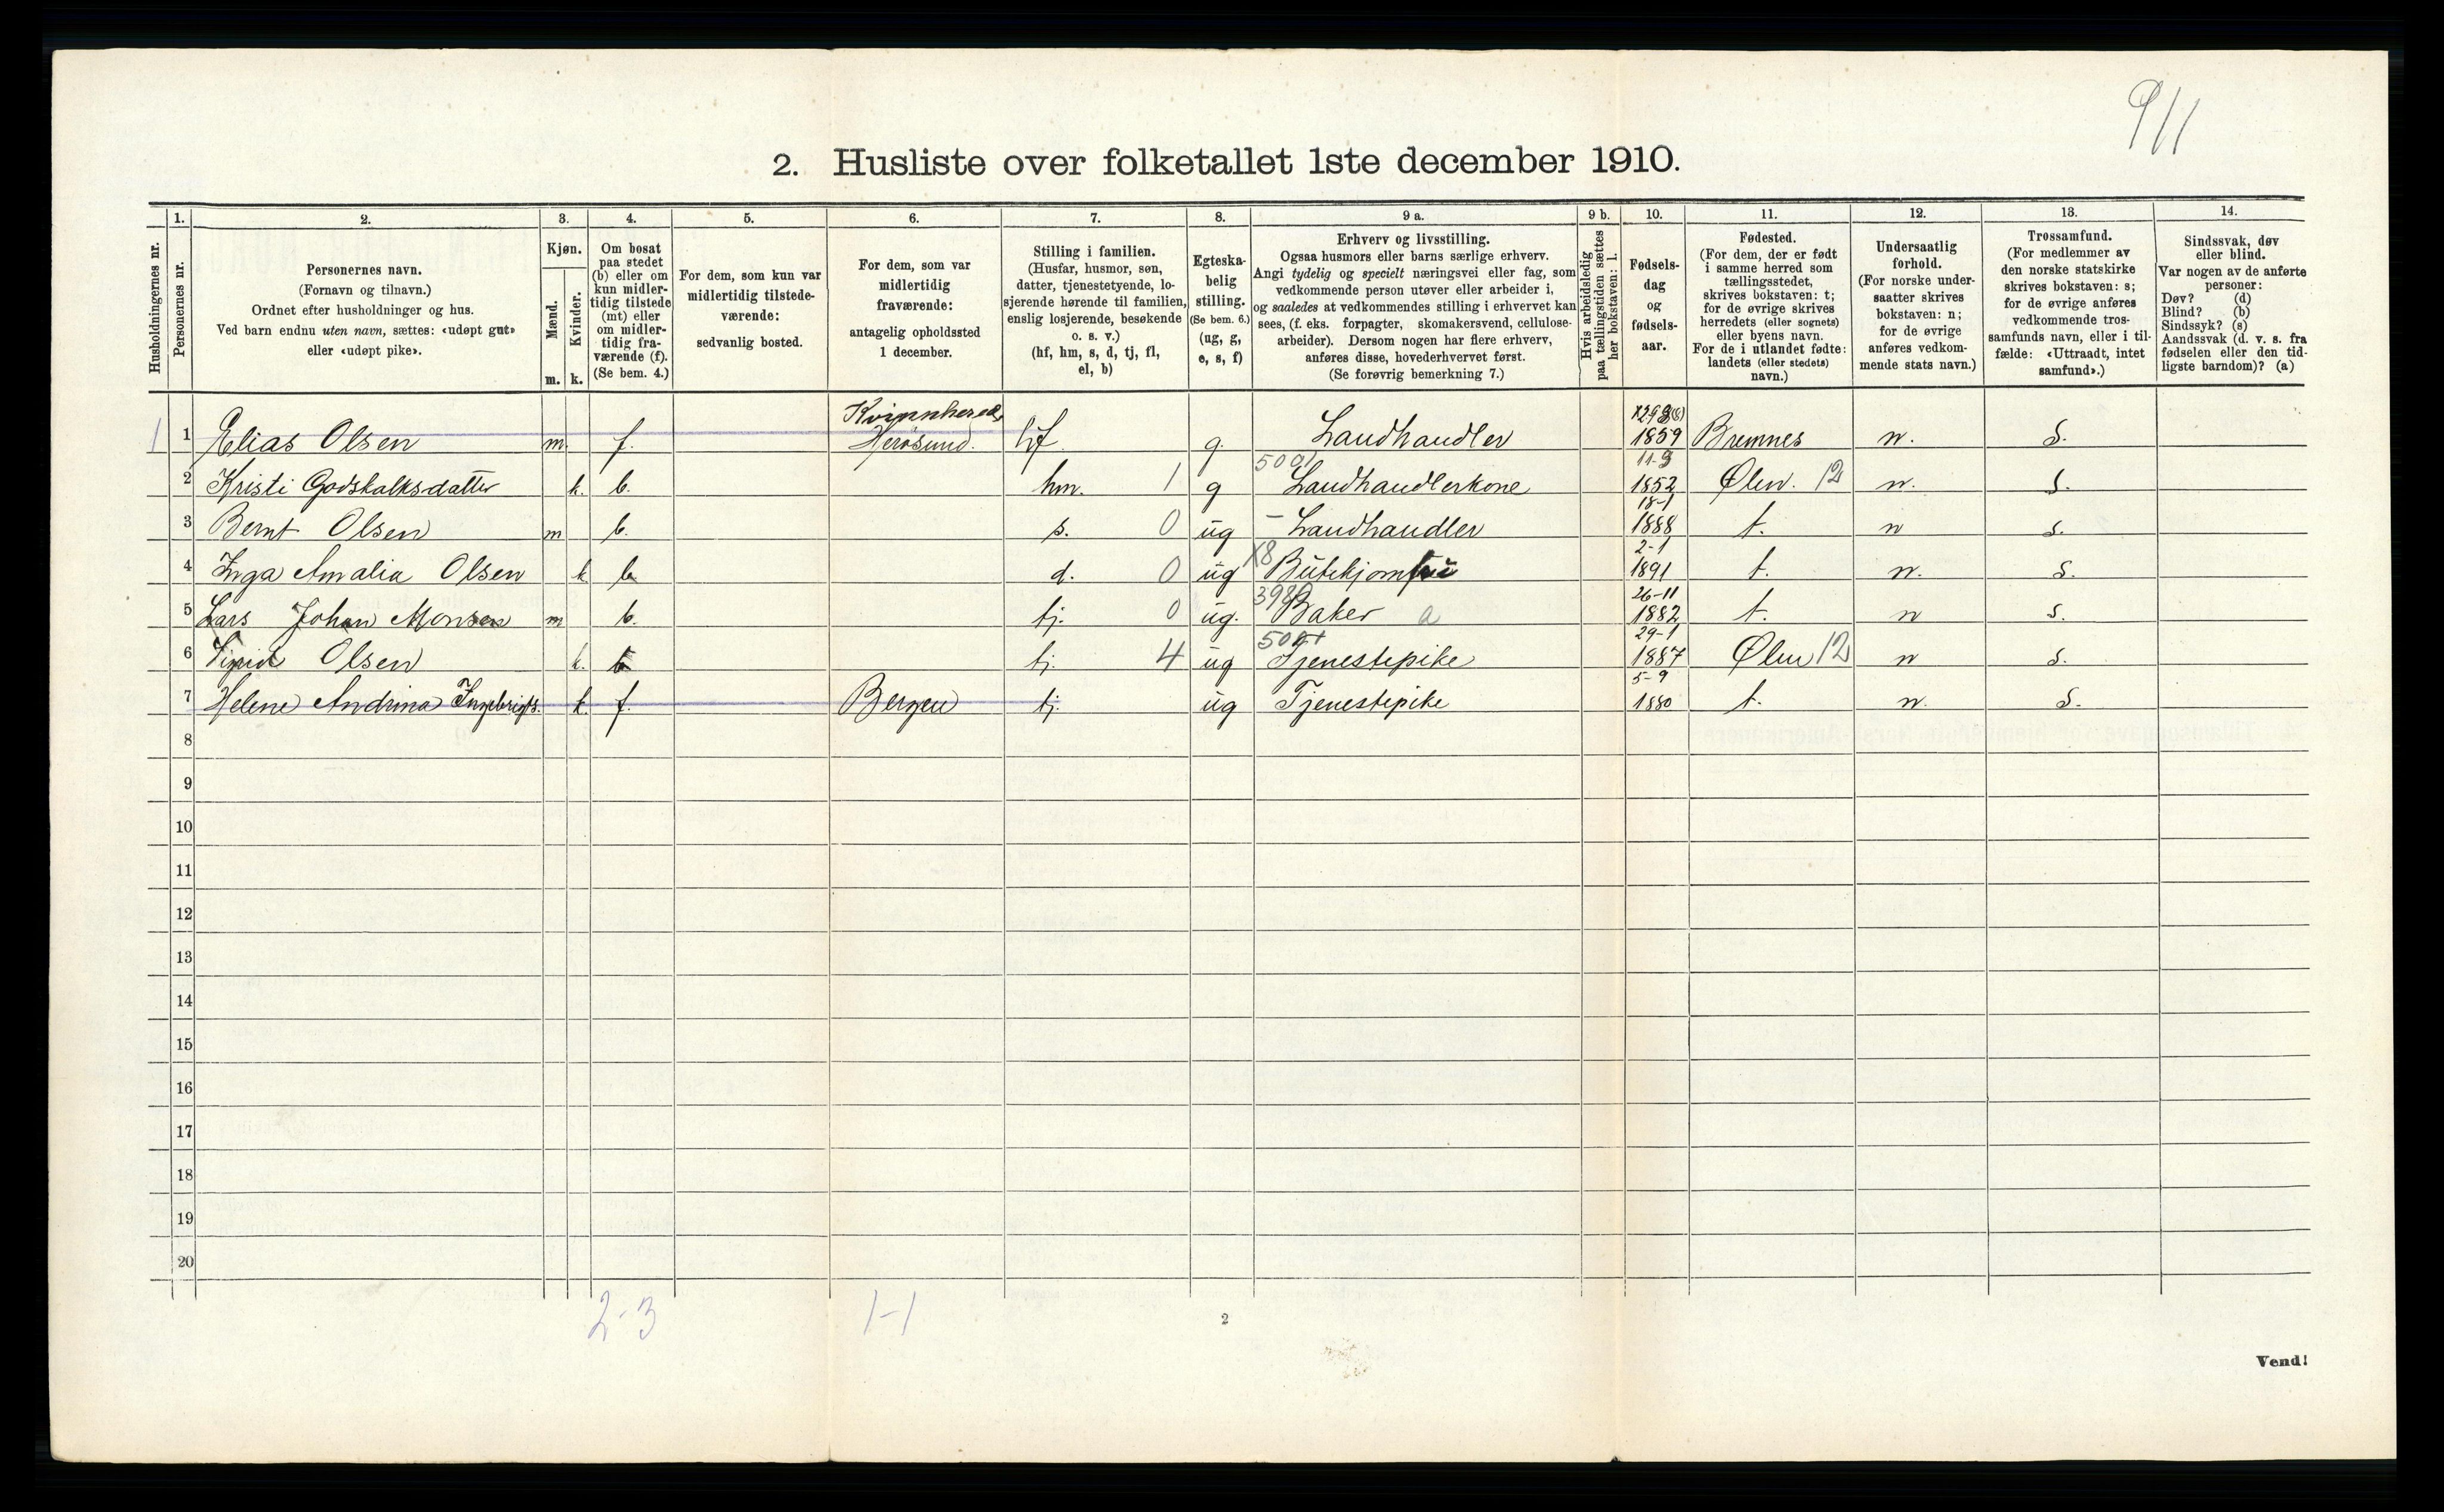 911
2. Husliste over folketallet 1ste december 1910.
Husholdningernes nr.
1.
Personernes nr.
2.
Personernes navn.
(Fornavn og tilnavn.)
Ordnet efter husholdninger og hus.
Ved barn endnu uten navn, sættes: «udøpt gut»
eller «udøpt pike».
3.
Kjøn.
Mænd.
Kvinder.
m. k.
4.
Om bosat
paa stedet
(b) eller om
kun midler-
tidig tilstede
(mt) eller
om midler-
tidig fra-
værende (f).
(Se bem. 4.)
5.
For dem, som kun var
midlertidig tilstede-
værende:
sedvanlig bosted.
6.
For dem, som var
midlertidig
fraværende:
antagelig opholdssted
1 december.
7.
Stilling i familien.
(Husfar, husmor, søn,
datter, tjenestetyende, lo-
sjerende hørende til familien,
enslig losjerende, besøkende
o. s. v.)
(hf, hm, s, d, tj, fl,
el, b)
8.
Egteska-
belig
stilling.
(Se bem. 6.)
(ug, g,
e, s, f)
9 a.
Erhverv og livsstilling.
Ogsaa husmors eller barns særlige erhverv.
Angi tydelig og specielt næringsvei eller fag, som
vedkommende person utøver eller arbeider i,
og saaledes at vedkommendes stilling i erhvervet kan
sees, (f. eks. forpagter, skomakersvend, cellulose-
arbeider). Dersom nogen har flere erhverv,
anføres disse, hovederhvervet først.
(Se forøvrig bemerkning 7.)
9 b.
Hvis arbeidsledig
paa tællingstiden sættes
her bokstaven: l.
10.
Fødsels-
dag
og
fødsels-
aar.
11.
Fødested.
(For dem, der er født
i samme herred som
tællingsstedet,
skrives bokstaven: t;
for de øvrige skrives
herredets (eller sognets)
eller byens navn.
For de i utlandet fødte:
landets (eller stedets)
navn.)
12.
Undersaatlig
forhold.
(For norske under-
saatter skrives
bokstaven: n;
for de øvrige
anføres vedkom-
mende stats navn.)
13.
Trossamfund.
(For medlemmer av
den norske statskirke
skrives bokstaven: s;
for de øvrige anføres
vedkommende tros-
samfunds navn, eller i til-
fælde: «Uttraadt, intet
samfund».)
14.
Sindssvak, døv
eller blind.
Var nogen av de anførte
personer:
Døv? (d)
Blind? (b)
Sindssyk? (s)
Aandssvak (d. v. s. fra
fødselen eller den tid-
ligste barndom)? (a)
Kvinnhered
1 1 Elias Olsen m. f. Herøsund. hf g. Landhandler 1859 Bremnes n. s.
5001 11-3
2 Kristi Godskalksdatter k. b. hm. 1 g Landhandlerkone 1852 Ølen. 12 n. s.
18-1
3 Bernt Olsen m b. s. 0 ug – Landhandler 1888 t. n s.
X8 2-1
4 Inga Amalia Olsen k b d. 0 ug Butikjomfru 1891 t. n. s.
26-11
5 Lars Johan Monsen m b. tj. 0 ug. Baker a 1882 t. n s.
29-1
6 Sigrid Olsen k. b tj. 4 ug Tjenestepike 1887 Ølen 12 n s.
5-9
7 Helene Andrina Ingebrigts. k. f. Bergen tj. ug Tjenestepike 1880 t. n. s.
8
9
10
11
12
13
14
15
16
17
18
19
20
2-3 1-1
2
Vend!